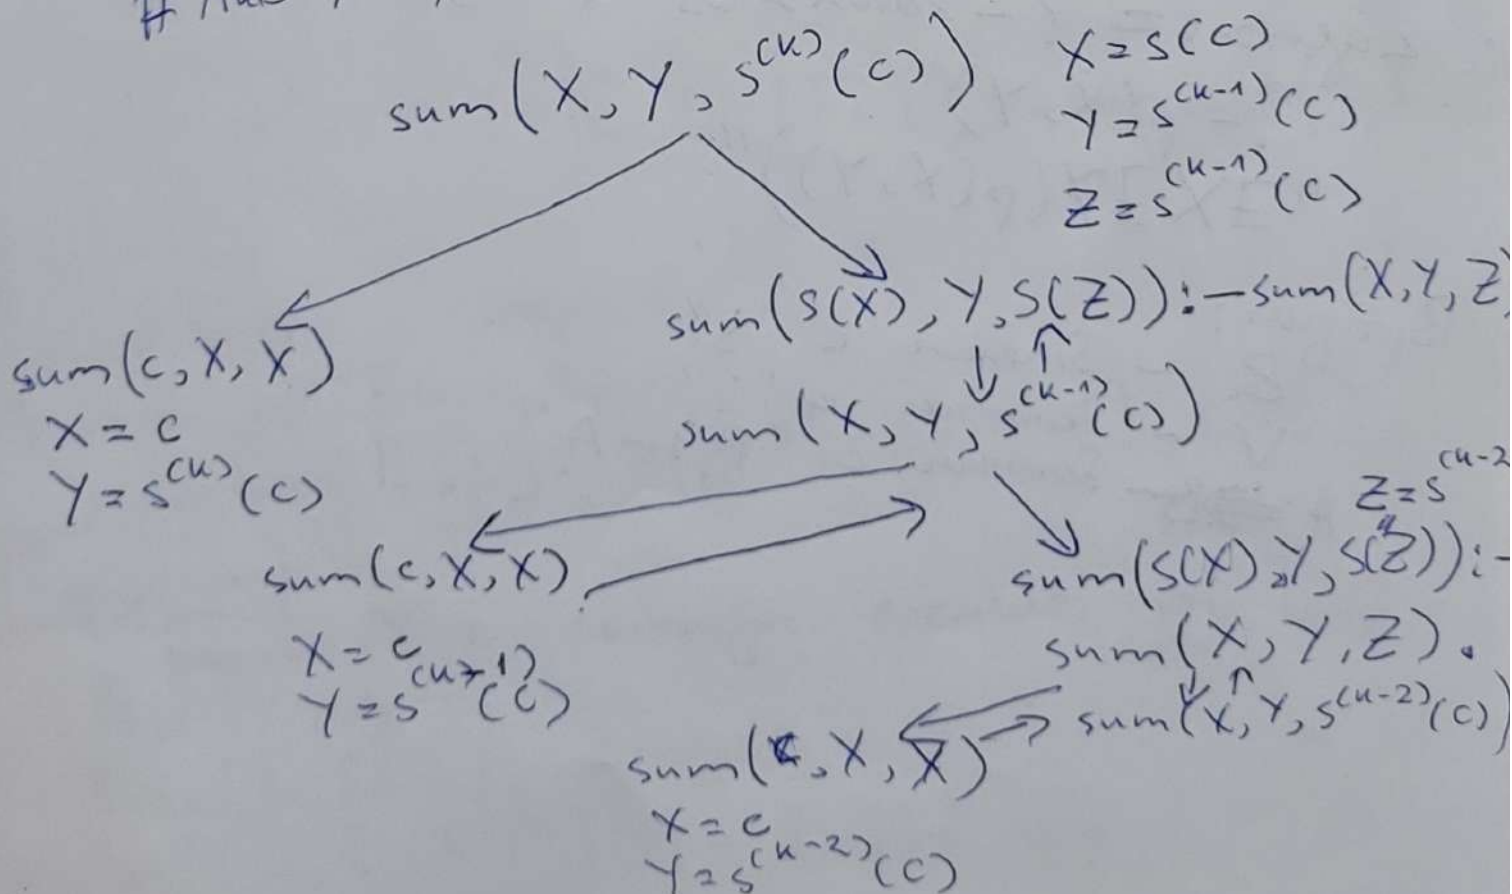 #
sum(X, Y, s^(k)(c))
X = s(c)
Y = s^(k-1)(c)
Z = s^(k-1)(c)
sum(s(X), Y, s(Z)) :- sum(X, Y, Z)
sum(c, X, X)
X = c
Y = s^(k)(c)
sum(X, Y, s^(k-1)(c))
Z = s^(k-2
sum(c, X, X)
X = c
Y = s^(k-1)(c)
sum(s(X), Y, s(Z)) :-
sum(X, Y, Z).
sum(X, Y, s^(k-2)(c))
sum(c, X, X)
X = c
Y = s^(k-2)(c)